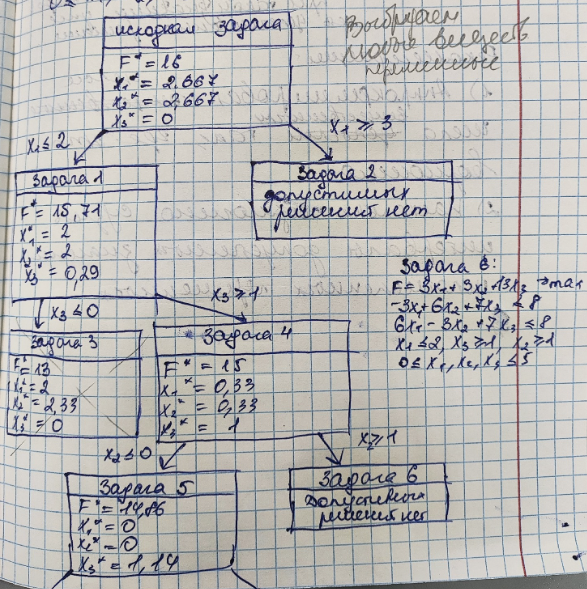 исходная задача
F* = 16
x₁* = 2,667
x₂* = 2,667
x₃* = 0
Выбираем
любые веществ
переменные
x₁ ≤ 2
x₁ ≥ 3
Задача 1
F* = 15,71
x₁* = 2
x₂* = 2
x₃* = 0,29
Задача 2
допустимых
решений нет
x₃ ≤ 0
x₃ ≥ 1
Задача 3
F* = 13
x₁* = 2
x₂* = 2,33
x₃* = 0
Задача 4
F* = 15
x₁* = 0,33
x₂* = 0,33
x₃* = 1
Задача 6:
F = 3x₁ + 3x₂ + 13x₃ → max
-3x₁ + 6x₂ + 7x₃ ≤ 8
6x₁ - 3x₂ + 7x₃ ≤ 8
x₁ ≤ 2, x₃ ≥ 1, x₂ ≥ 1
0 ≤ x₁, x₂, x₃ ≤ 5
x₂ ≤ 0
x₂ ≥ 1
Задача 5
F* = 14,86
x₁* = 0
x₂* = 0
x₃* = 1,14
Задача 6
Допустимых
решений нет